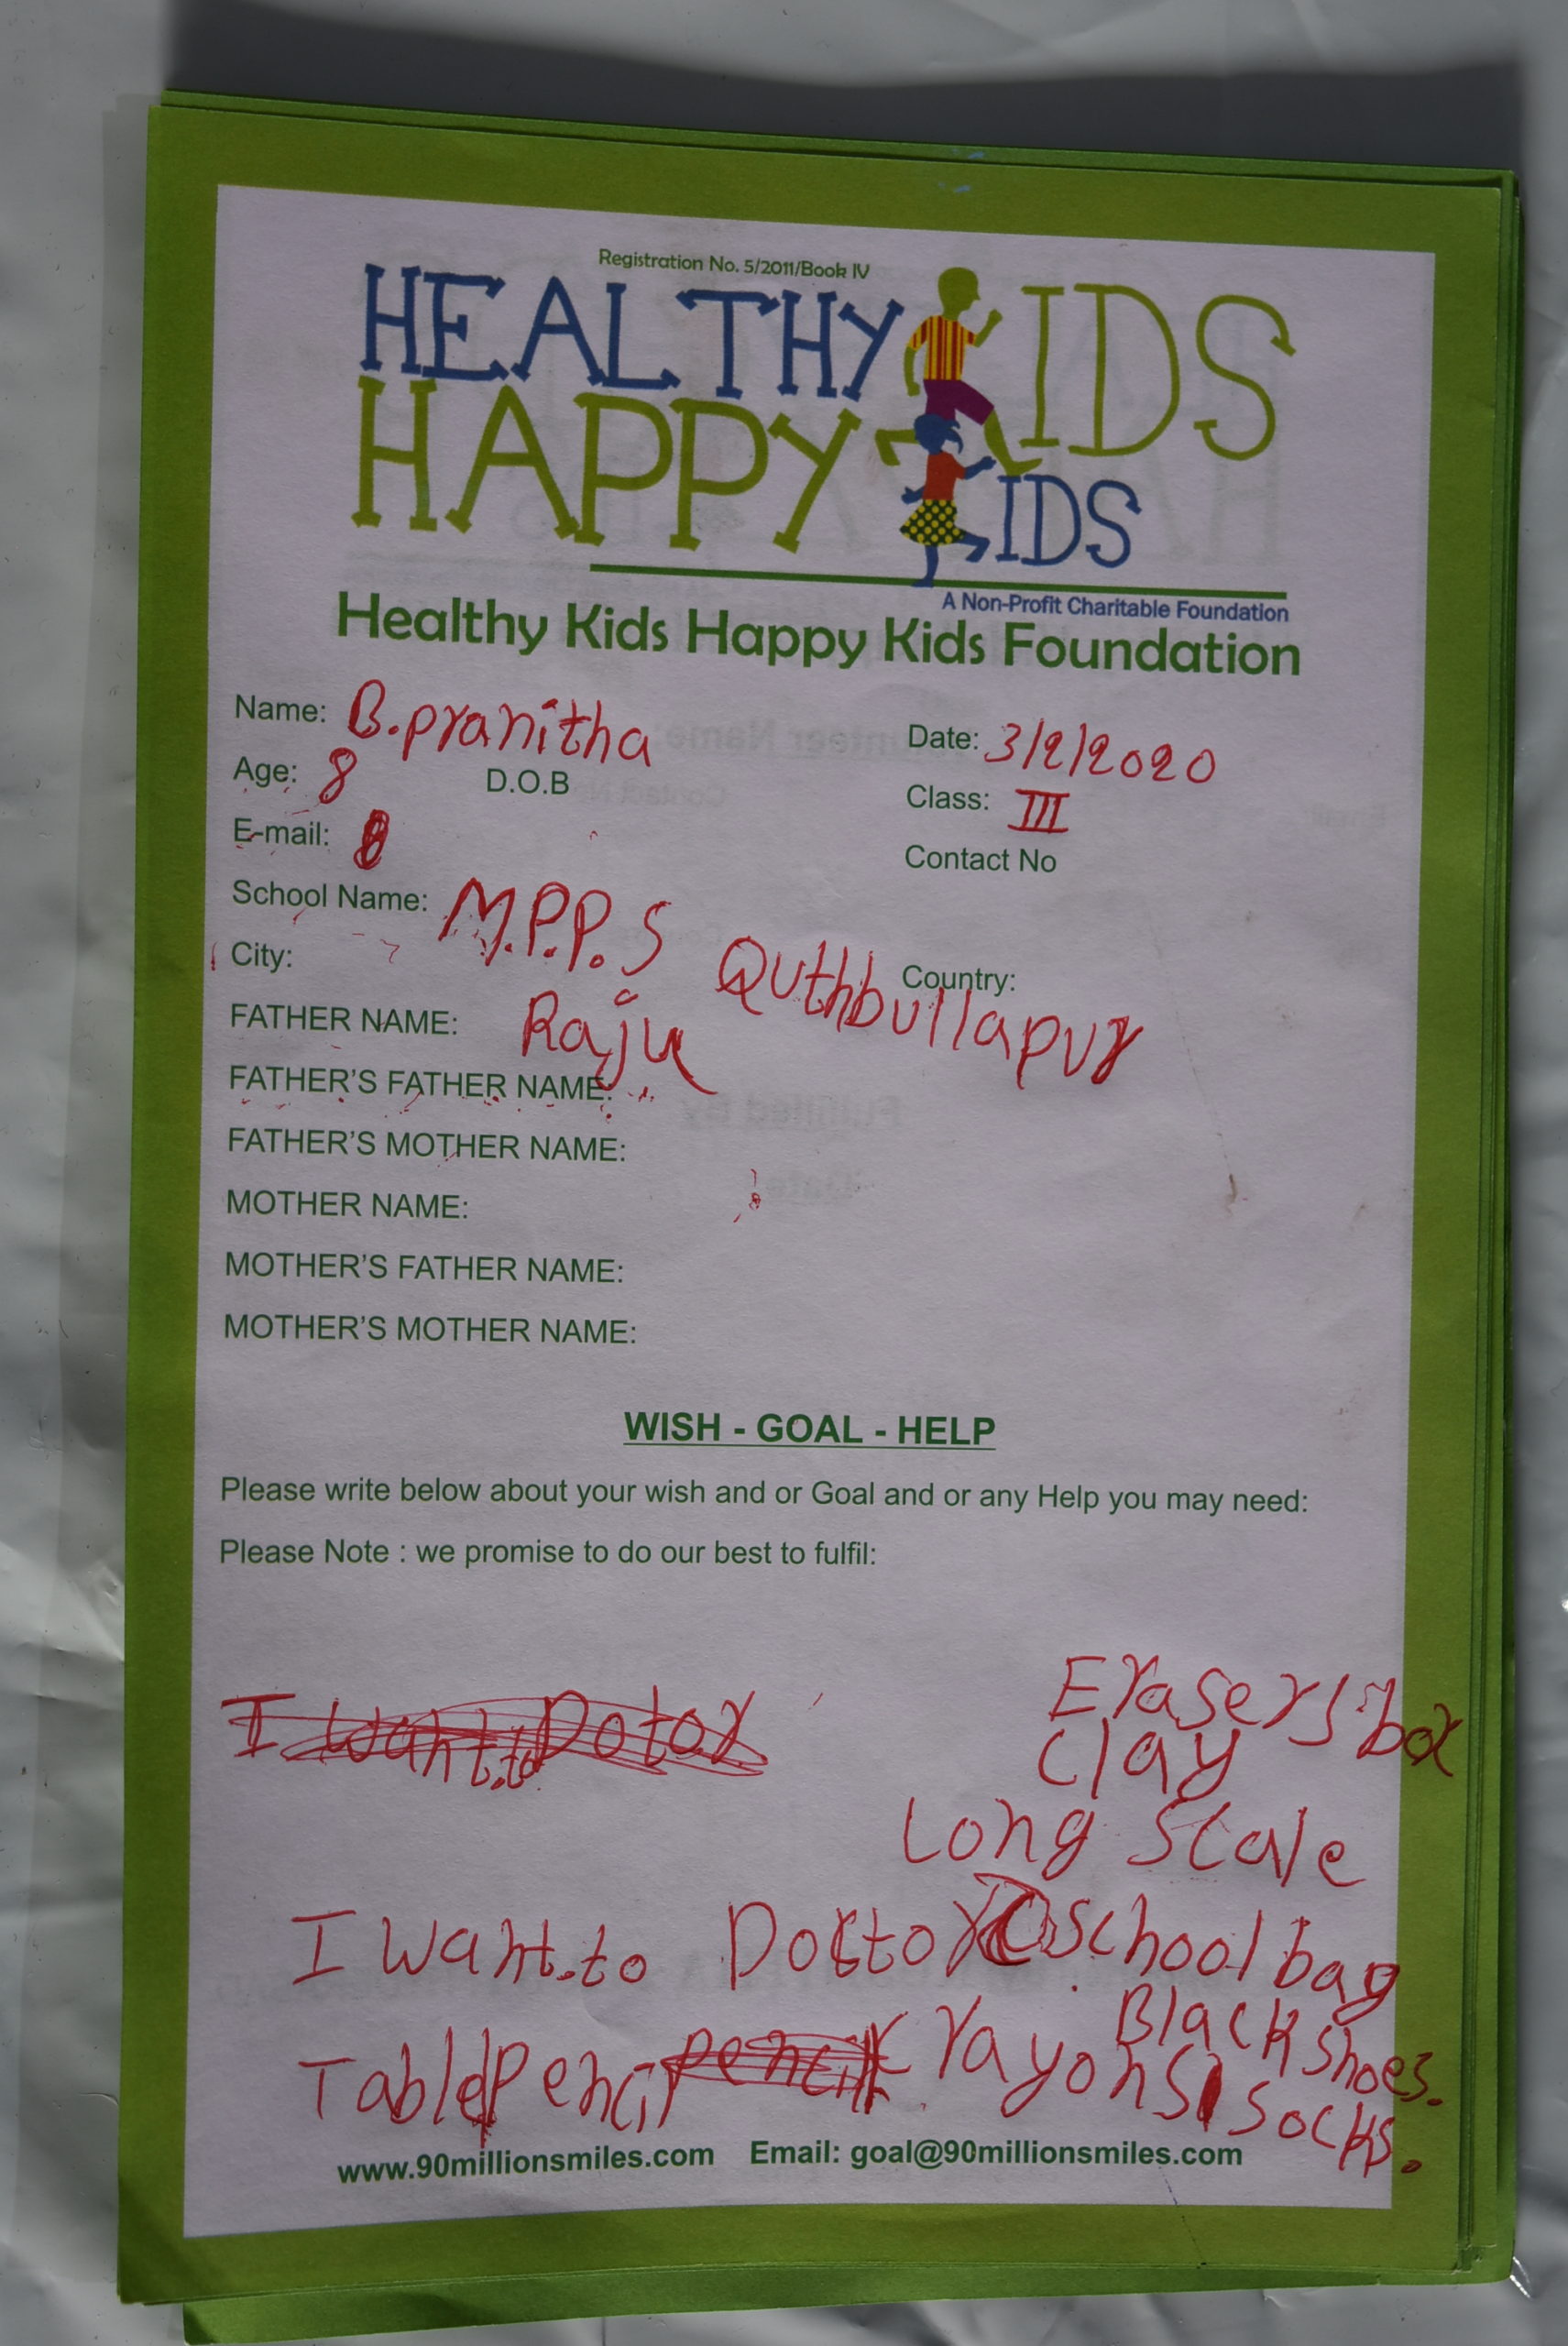 Registration No. 5/2011/Book IV
HEALTHY KIDS
HAPPY KIDS
A Non-Profit Charitable Foundation
Healthy Kids Happy Kids Foundation
Name: B.pranitha Date: 3/2/2020
Age: 8 D.O.B Class: III
E-mail: Contact No
School Name: M.P.P.S Quthbullapur
City: Country:
FATHER NAME: Raju
FATHER'S FATHER NAME:
FATHER'S MOTHER NAME:
MOTHER NAME:
MOTHER'S FATHER NAME:
MOTHER'S MOTHER NAME:
WISH - GOAL - HELP
Please write below about your wish and or Goal and or any Help you may need:
Please Note : we promise to do our best to fulfil:
Erasers box
I want.to Dotor
clay
Long Scale
I want.to Doctor school bag
Black shoes.
Table pencil pencil rayons socks.
www.90millionsmiles.com Email: goal@90millionsmiles.com